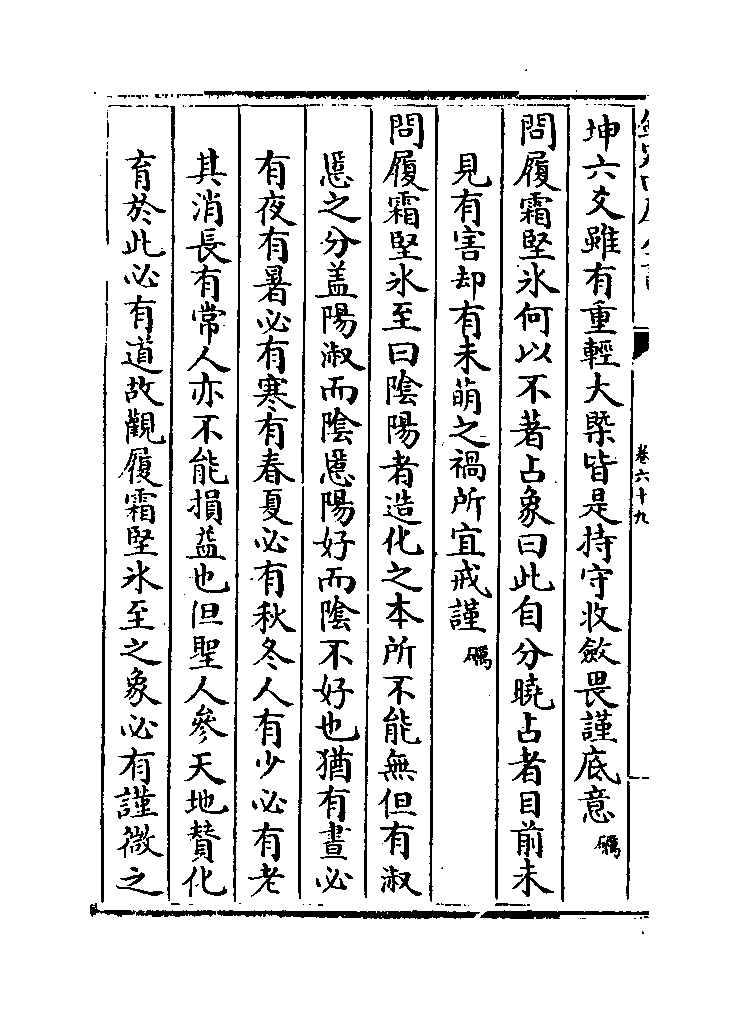 卷六十九
坤六爻雖有重輕大槩皆是持守收斂畏謹底意礪
問履霜堅氷何以不著占象曰此自分曉占者目前未
見有害却有未萌之禍所宜戒謹礪
問履霜堅氷至曰陰陽者造化之本所不能無但有淑
慝之分盖陽淑而陰慝陽好而陰不好也猶有晝必
有夜有暑必有寒有春夏必有秋冬人有少必有老
其消長有常人亦不能損益也但聖人參天地贊化
育於此必有道故觀履霜堅氷至之象必有謹微之